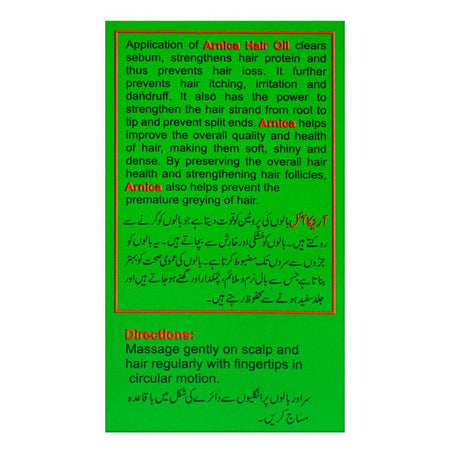 Application of Arnica Hair Oil clears
sebum, strengthens hair protein and
thus prevents hair loss. It further
prevents hair itching, irritation and
dandruff. It also has the power to
strengthen the hair strand from root to
tip and prevent split ends. Arnica helps
improve the overall quality and health
of hair, making them soft, shiny and
dense. By preserving the overall hair
health and strengthening hair follicles,
Arnica also helps prevent the
premature greying of hair.
آرنیکا آئل بالوں کی پروٹین کو قوت دیتا ہے جو بالوں کو گرنے سے
روکتے ہیں۔ بالوں کو خشکی اور خارش سے بچاتے ہیں۔ یہ بالوں کو
جڑوں سے سروں تک مضبوط کرتا ہے۔ بالوں کی عمومی صحت کو بہتر
بناتا ہے جس سے بال نرم و ملائم، چمکدار اور گھنے ہو جاتے ہیں اور
جلد سفید ہونے سے محفوظ رہتے ہیں۔
Directions:
Massage gently on scalp and
hair regularly with fingertips in
circular motion.
سر اور بالوں پر انگلیوں سے دائرے کی شکل میں باقاعدہ
مساج کریں۔